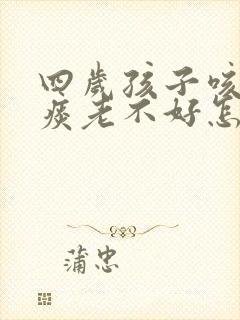 四岁孩子咳
痰老不好怎
蒲忠